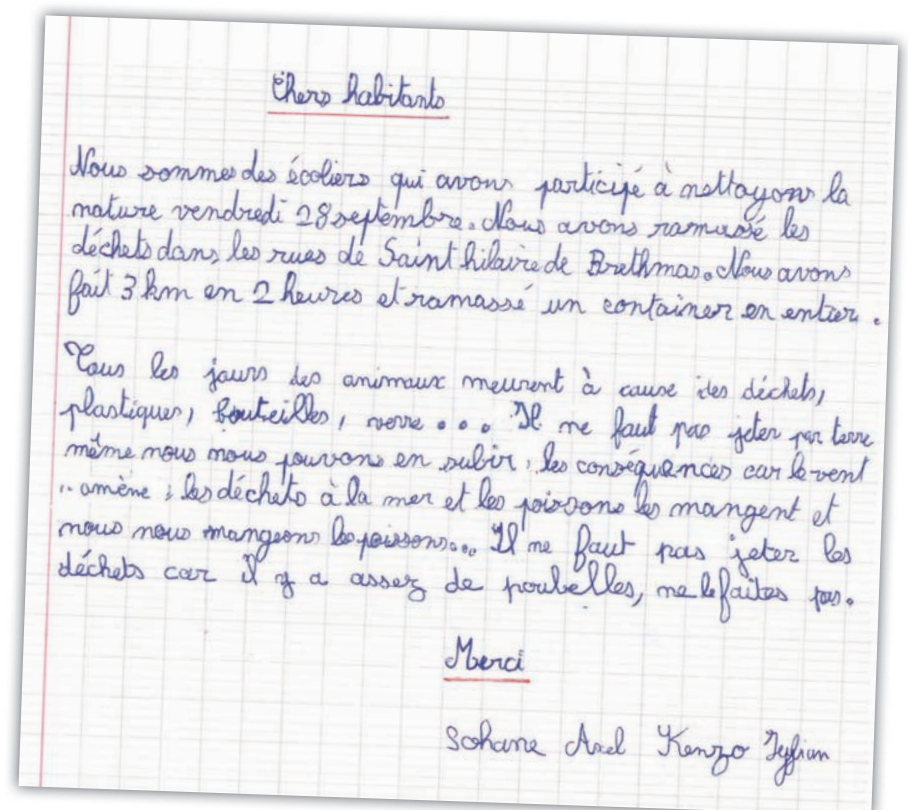 Chers habitants
Nous sommes des écoliers qui avons participé à nettoyons la
nature vendredi 28 septembre. Nous avons ramassé les
déchets dans les rues de Saint hilaire de Brethmas. Nous avons
fait 3 km en 2 heures et ramassé un container en entier.
Tous les jours des animaux meurent à cause des déchets,
plastiques, bouteilles, verre... Il ne faut pas jeter par terre
même nous nous pouvons en subir les conséquences car le vent
amène les déchets à la mer et les poissons les mangent et
nous nous mangeons les poissons... Il ne faut pas jeter les
déchets car il y a assez de poubelles, ne le faites pas.
Merci
Sohane Axel Kenzo